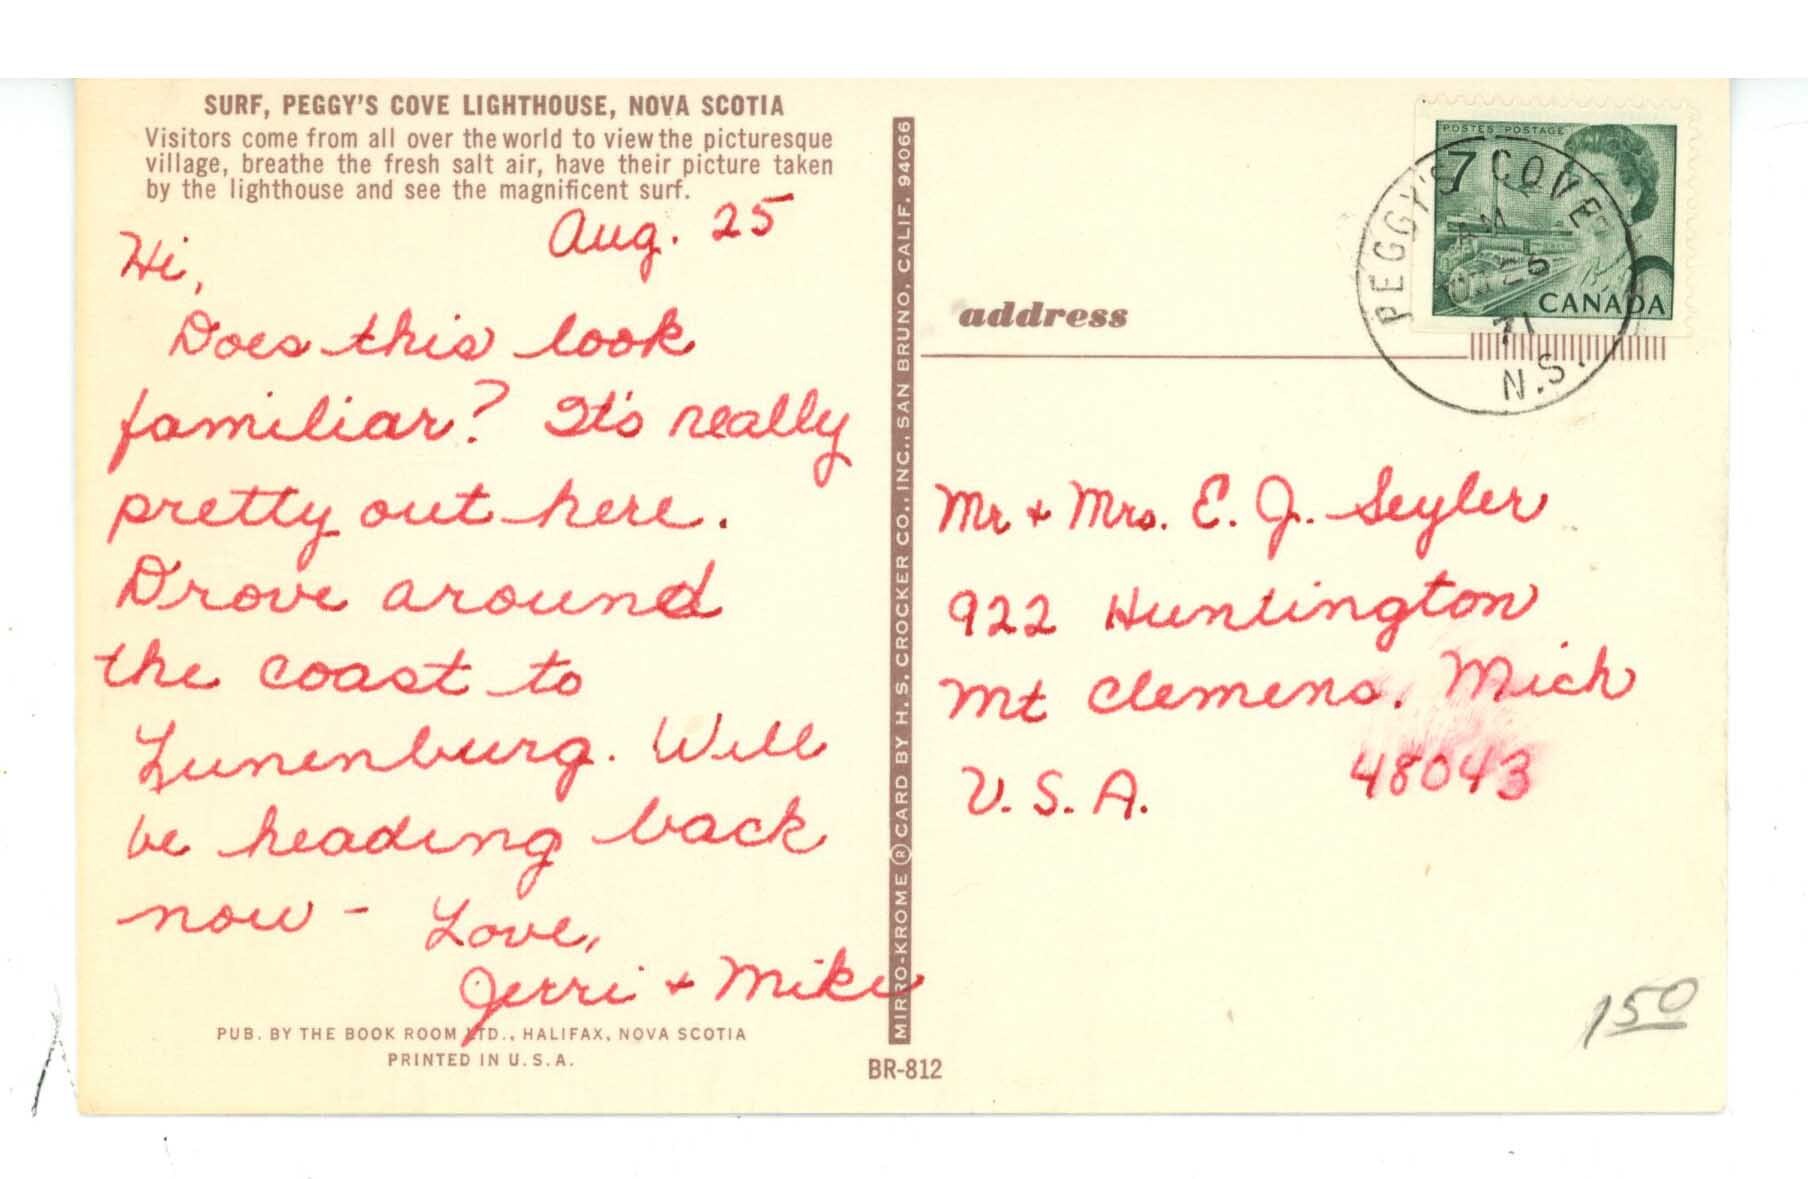 SURF, PEGGY'S COVE LIGHTHOUSE, NOVA SCOTIA
Visitors come from all over the world to view the picturesque
village, breathe the fresh salt air, have their picture taken
by the lighthouse and see the magnificent surf.
Aug. 25
Hi,
Does this look
familiar? It's really
pretty out here.
Drove around
the coast to
Lunenburg. Will
be heading back
now - Love,
Jerri + Mike
PUB. BY THE BOOK ROOM LTD., HALIFAX, NOVA SCOTIA
PRINTED IN U.S.A.
MIRRO-KROME ® CARD BY H. S. CROCKER CO., INC., SAN BRUNO, CALIF. 94066
BR-812
POSTES POSTAGE
7
CANADA
PEGGY'S COVE
AM
71
N.S.
address
Mr + Mrs. E. J. Seyler
922 Huntington
Mt Clemens, Mich
48043
U.S.A.
150